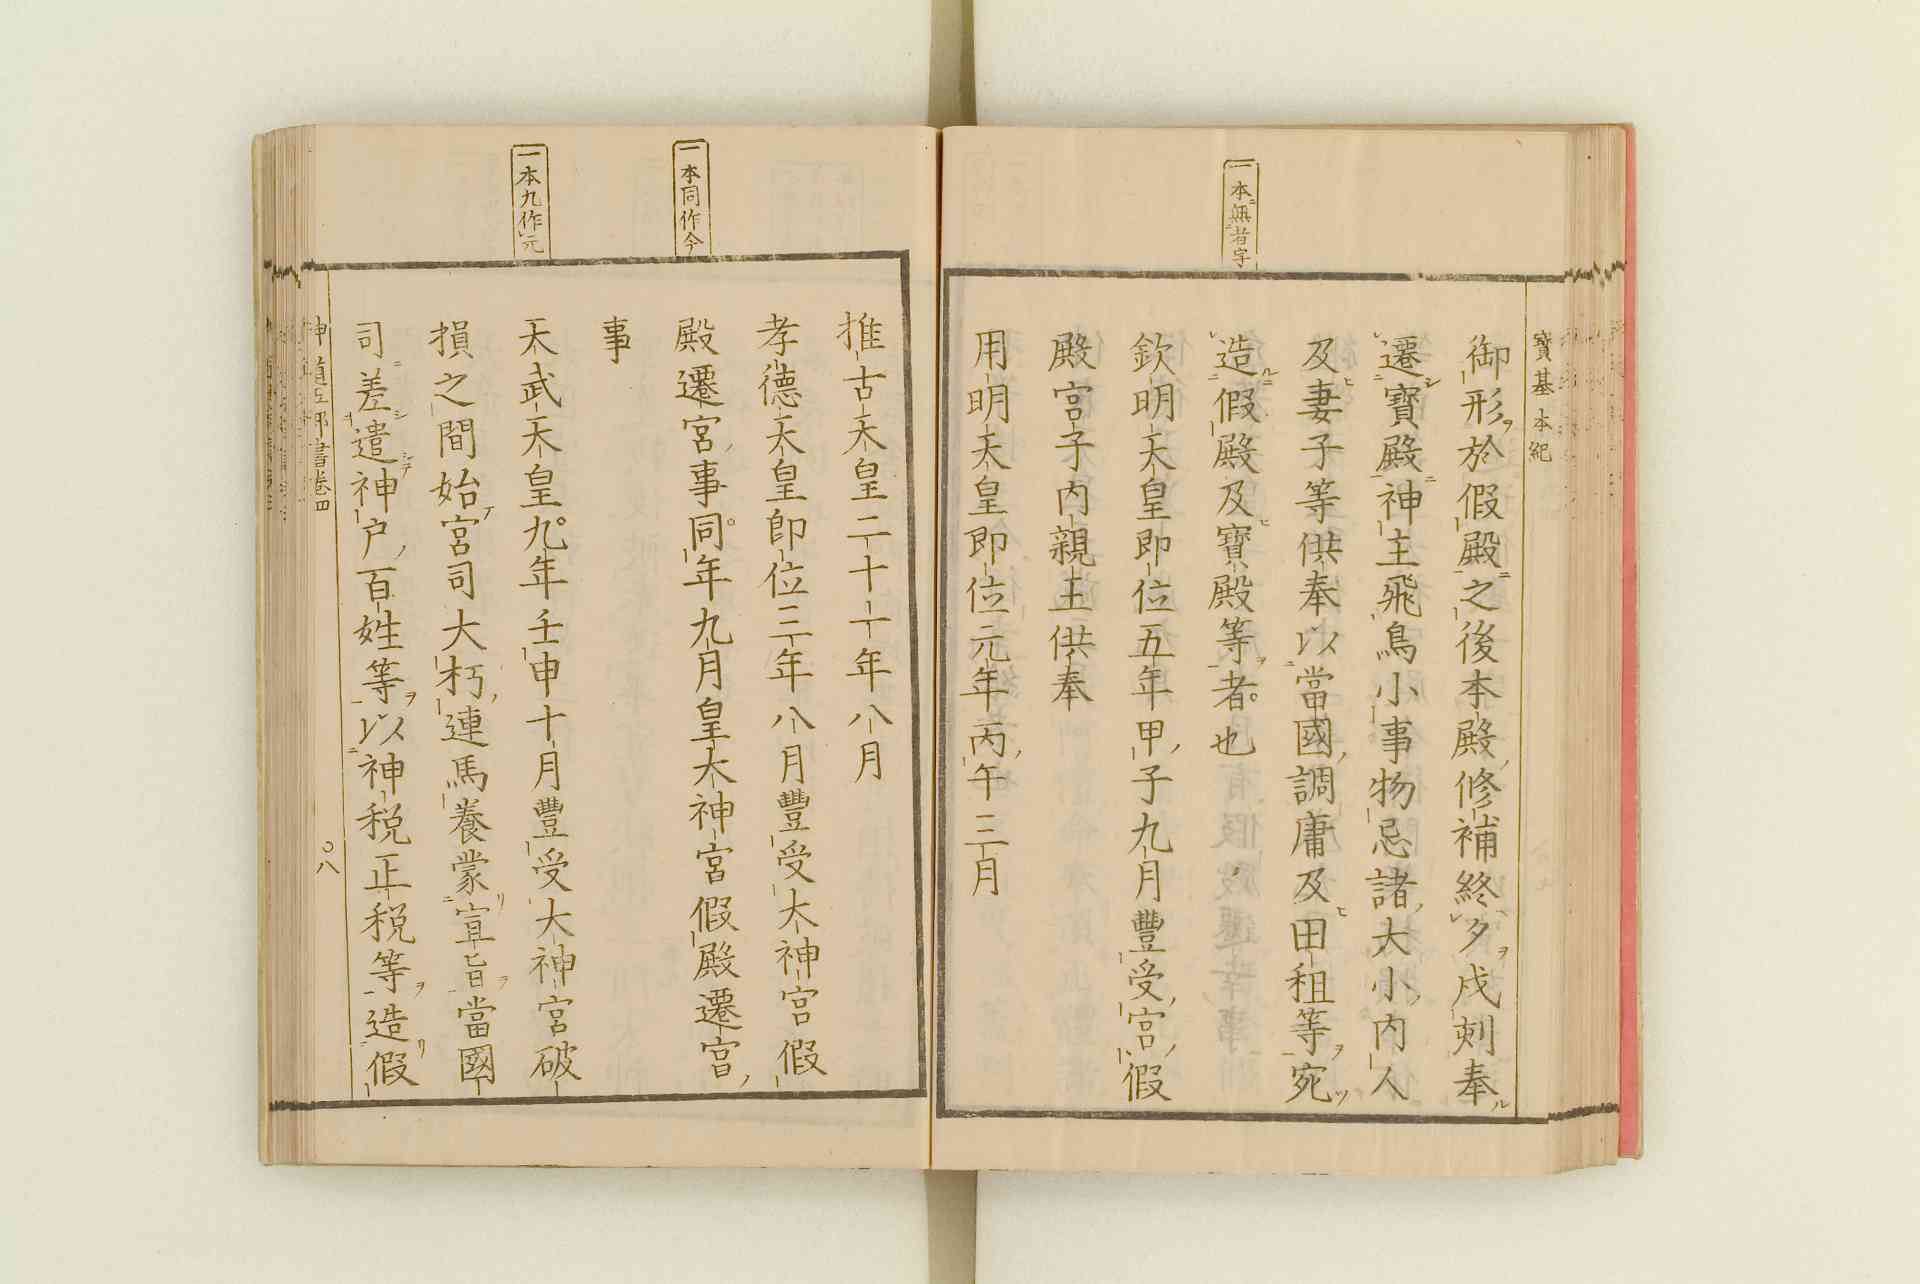 寶基本紀
一本無者字
御形於假殿之後本殿修補終夕戌刻奉
遷寶殿神主飛鳥小事物忌諸大小内人
及妻子等供奉以當國調庸及田租等宛
造假殿及寶殿等者也
欽明天皇即位五年甲子九月豐受宮假
殿宮子内親王供奉
用明天皇即位元年丙午三月
一本同作今
一本九作元
推古天皇二十十年八月
孝德天皇即位三年八月豐受太神宮假
殿遷宮事同年九月皇太神宮假殿遷宮
事
天武天皇九年壬申十月豐受大神宮破
損之間始宮司大朽連馬養蒙宣旨當國
司差遣神戸百姓等以神税正税等造假
神道五部書卷四
〇八